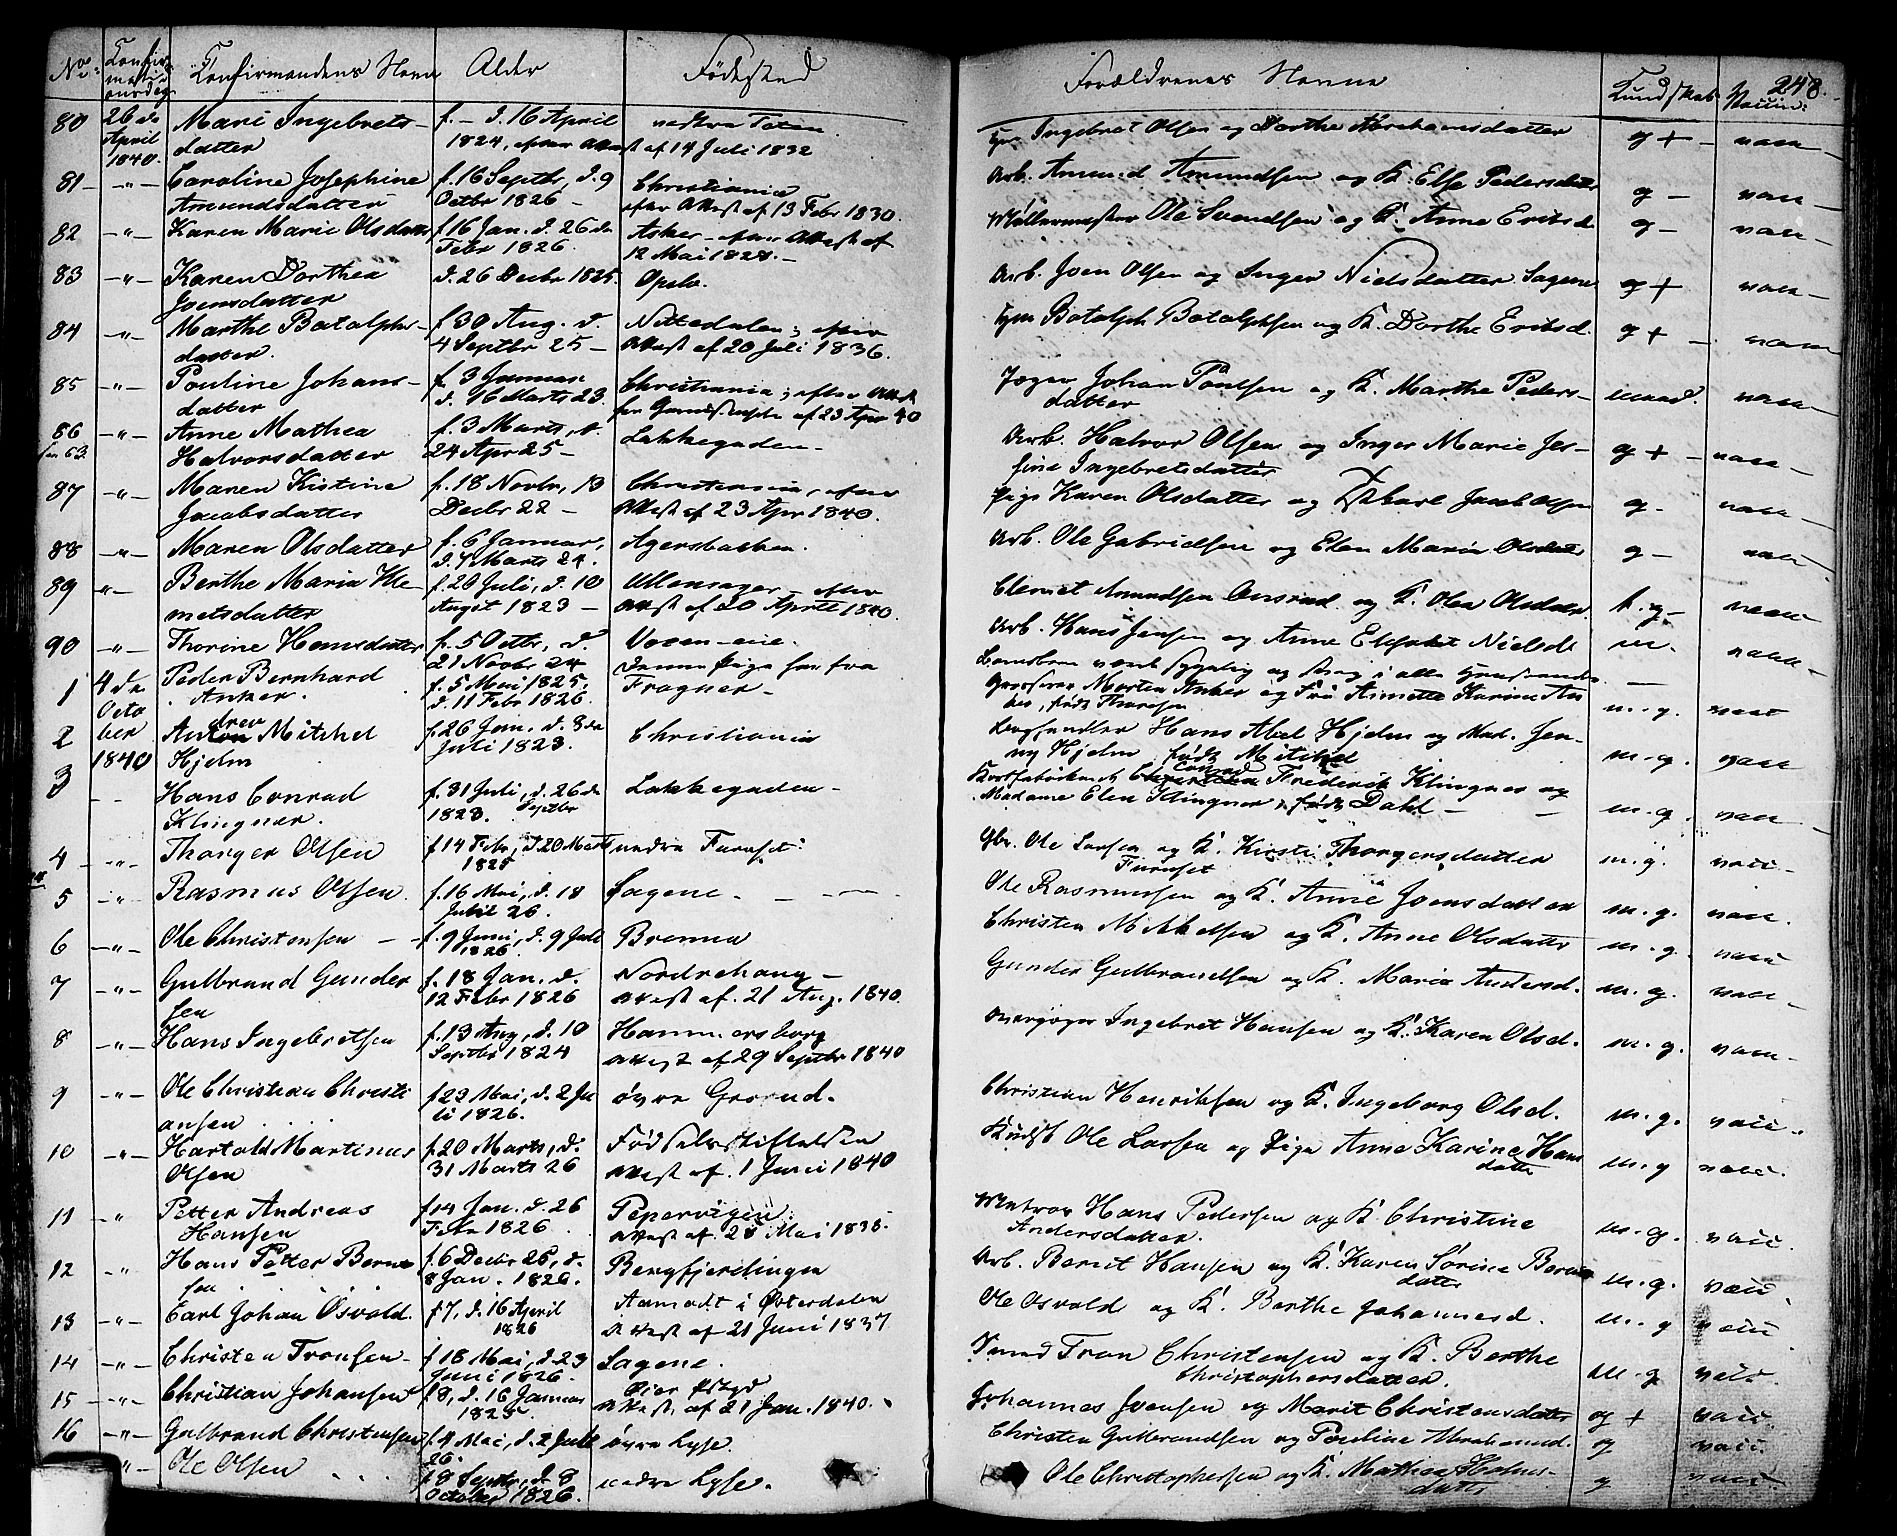 248.
No Confirmationsdag Confirmandens Navn Alder Fødested Forældrenes Navne Kundskab Vaccin:
80 26de April 1840. Mari Ingebretsdatter f. – d. 16 April 1824, efter Attest af 14 Juli 1832 nedtra Toten Ingebret Olsen og Dorthe Abrahamsdatter g + vacc
81 –"– Caroline Josephine Amundsdatter f. 16 Septbr, d. 9 Octbr 1826 – Christiania efter Attest af 13 Febr 1830. Arb. Amund Amundsen og K. Else Pedersdatter g – vacc –
82 –"– Karen Marie Olsdatter f. 16 Jan. d. 26 de Febr 1826. Asker – efter Attest af 12 Mai 1828. – Møllermester Ole Svendsen og K. Anne Eriksd g – vacc –
83 –"– Karen Dorthea Joensdatter d. 26 Decbr 1825. Opslo. Arb. Joen Olsen og Inger Nielsdatter Sagene g + vacc –
84 –"– Marthe Botolphsdatter. f 30 Aug. d. 4 Septbr 25 – Nittedalen; efter Attest af 20 Juli 1836. Botolph Botolphsen og K. Dorthe Eriksd. g + vacc
85 –"– Pouline Johansdatter f. 3 Januar d. 16 Marts 23. Christiania; efter Attest af 23 Apr 40 Jæger Johan Poulsen og K. Marthe Pedersdatter maad. vacc –
86 –"– Anne Mathea Halvorsdatter f. 3 Marts, d. 24 Apr 25 – Lakkegaden – Arb. Halvor Olsen og Inger Marie Jessine Ingebretsdatter g + vacc –
87 –"– Maren Kistine Jacobsdatter f. 18 Novbr, 13 Decbr 22 – Christiania, efter Attest af 23 Apr 1840. Pige Karen Olsdatter og Jacob Olsen g – vacc –
88 –"– Maren Olsdatter f. 6 Januar, d. 7 Marts 24. Agersbakken. Arb. Ole Gabrielsen og Elen Maria Olsdatter g – vacc
89 –"– Berthe Maria Klemetsdatter f. 20 Juli, d. 10 August 1823 – Ullensager – efter Attest af 20 April 1840. Clemet Amundsen og K. Olea Olsdatter t. g – vacc
90 –"– Thorine Hansdatter f. 5 Octbr, d. 21 Novbr 24 Voxen-eie. Arb. Hans Jensen og Anne Elisabet Nielsd m. vacc –
1 4 de October 1840 Peder Bernhard Anker. f. 5 Mai 1825, d. 11 Febr 1826. Frogner – Morten Anker og Fru Annette Karine Anker, født m. g. vacc
2 Andrew Mitchel Hjelm f. 26 Jan, d. 8 de Juli 1823. Christiania Hans Abel Hjelm og Mad. Jenny Hjelm født Mitchel m. g. vacc
3 – – Hans Conrad Klingner. f. 31 Juli, d. 26 de Septbr 1823. Lakkegaden – Conrad Frederik Klingner og Madame Elen Klingner, født Dahl – m. g. vacc –
4 –"– Thorger Olsen f 14 Febr, d. 20 Marts 1825 nedre Furuset Gbr. Ole Larsen og K. Kirsti Thorgersdatter Furuset m. g. vacc –
5 –"– Rasmus Olsen. f. 16 Mai, d. 18 Juli 26. Sagene. Ole Rasmussen og K. Anne Joensdatter m. g. vacc.
6 –"– Ole Christensen f. 9 Juni, d. 9 Juli 1826. Brenna Christen Mikkelsen og K. Anne Olsdatter m. g. vacc
7 –"– Gulbrand Gundersen f. 18 Jan. d. 12 Febr 1826 Nordrehoug – Attest af. 21 Aug. 1840. Gunder Gulbrandsen og K. Maria Andersd. m. g. vacc –
8 –"– Hans Ingebretsen f. 13 Aug, d. 10 Septbr 1824 Hammersborg Attest af 29 Septbr 1840 Ingebret Hansen og K. Karen Olsd. m. g. vacc –
9 –"– Ole Christian Christiansen f 23 Mai, d. 2 Juli 1826. øvre Grorud. Christian Henriksen og K. Ingeborg Olsd. m. g. vacc.
10 –"– Martinus Olsen f. 20 Marts, d. 31 Marts 26 Fødselsstiftelsen Attest af. 1 Juni 1840 Kudsk Ole Larsen og Pige Anne Karine Hansdatter m. g vacc.
11 –"– Petter Andreas Hansen f 14 Jan. d. 26 Febr 1826 Pepervigen Attest af 28 Mai 1835. Matros Hans Pedersen og K. Christine Andersdatter. m. g. vacc.
12 –"– Hans Petter Berntsen f. 6 Decbr 25, d. 8 Jan. 1826. Bergfjerdingen Arb. Bernt Hansen og K. Karen Sørine Berntsdatter m. g. vacc.
13 –"– Carl Johan Osvald. f 7, d. 16 April 1826 Aamodt i Østerdalen Attest af 21 Juni 1837 Ole Osvald og K. Berthe Johannesd. m. g vacc
14 –"– Christen Tronsen – f 18 Mai, d. 23 Juni 1826. Sagene. Tron Christensen og K. Berthe Christophersdatter. m. g vacc.
15 –"– Christian Johansen f 8, d. 16 Januar 1825. Øier Attest af 21 Jan. 1840. Johannes Joensen og Marit Christensdatter g + vacc.
16 –"– Gulbrand Christensen f. 4 Mai, d. 2 Juli 26. øvre Lyse. Christen Gulbrandsen og Pouline Abrahamsd. g vacc.
–"– Ole Olsen f 8 Septbr, d. 8 October 1826. nedre Lyse. Ole Christophersen og K. Mathea g vacc